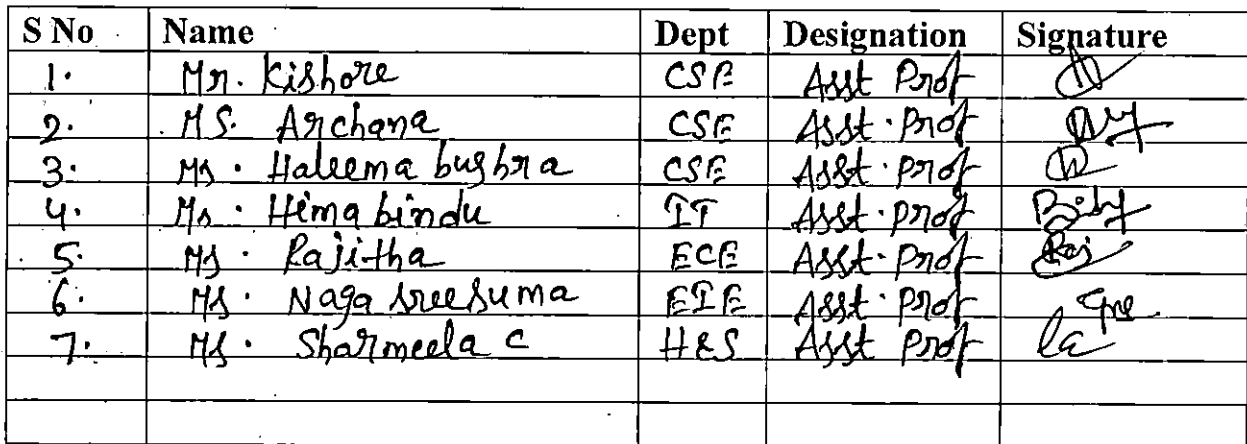 S No Name Dept Designation Signature
1. Mr. Kishore CSE Asst Prof
2. MS. Archana CSE Asst. Prof
3. Ms. Haleema bushra CSE Asst. Prof
4. Ms. Hima bindu IT Asst. Prof
5. Ms. Rajitha ECE Asst. Prof Raj
6. Ms. Naga sreesuma EIE Asst. Prof
7. Ms. Sharmeela C H&S Asst Prof